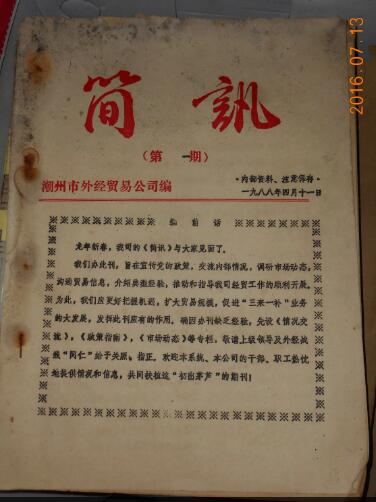 2016.07.13
简 訊
（第一期）
潮州市外经贸易公司编
·内部资料、注意保存·
一九八八年四月十一日
编 前 话
龙年新春，我司的《简讯》与大家见面了。
我们办此刊，旨在宣传党的政策，交流内部情况，调研市场动态，
沟通贸易信息，介绍典型经验，推动和指导我司经贸工作的顺利开展。
为此，我们应更好把握机遇，扩大贸易规模，促进“三来一补”业务
的大发展，发挥此刊应有的作用。确因办刊缺乏经验，先设《情况交
流》，《政策指南》，《市场动态》等专栏，敬请上级领导及外经战
线“同仁”给予关照，指正。欢迎本系统、本公司的干部、职工踊跃
地提供情况和信息，共同扶植这“初出茅芦”的期刊！